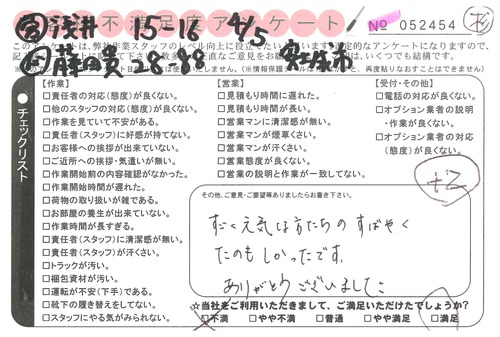 不満足度アンケート
No 052454
浅井 15-16 4/5
28-88 安城市
チェックリスト
【作業】
□責任者の対応(態度)が良くない。
□他のスタッフの対応(態度)が良くない。
□作業を見ていて不安がある。
□責任者(スタッフ)に好感が持てない。
□お客様への挨拶が出来ていない。
□ご近所への挨拶・気遣いが無い。
□作業開始前の内容確認がなかった。
□作業開始時間が遅れた。
□荷物の取り扱いが雑である。
□お部屋の養生が出来ていない。
□作業時間が長すぎる。
□責任者(スタッフ)に清潔感が無い。
□責任者(スタッフ)が汗くさい。
□トラックが汚い。
□梱包資材が汚い。
□運転が不安(下手)である。
□靴下の履き替えをしてない。
□スタッフにやる気がみられない。
【営業】
□見積もり時間に遅れた。
□見積もり時間が長い。
□営業マンに清潔感が無い。
□営業マンが煙草くさい。
□営業マンが汗くさい。
□営業態度が良くない。
□営業の説明と作業が一致してない。
【受付・その他】
□電話の対応が良くない。
□オプション業者の説明
・作業が良くない。
□オプション業者の対応
(態度)が良くない。
その他、ご意見・ご要望等ありましたらお書き下さい。
すごく元気な方たちの すばやく
たのもしかったです。
ありがとうございました
☆当社をご利用いただきまして、ご満足いただけたでしょうか?
□不満 □やや不満 □普通 □やや満足 □満足